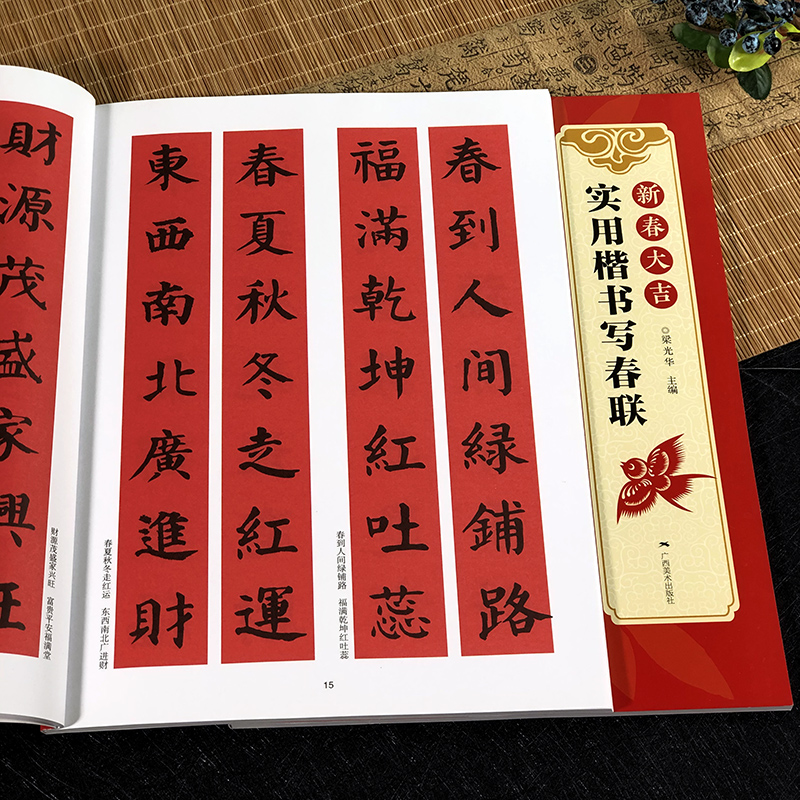 春到人间緑鋪路
福滿乾坤紅吐蕊
春到人间绿铺路 福满乾坤红吐蕊
春夏秋冬走紅運
東西南北廣進財
春夏秋冬走红运 东西南北广进财
15
財源茂盛家興旺
财源茂盛家兴旺 富贵平安福满堂
新春大吉
实用楷书写春联
◎梁光华 主编
广西美术出版社